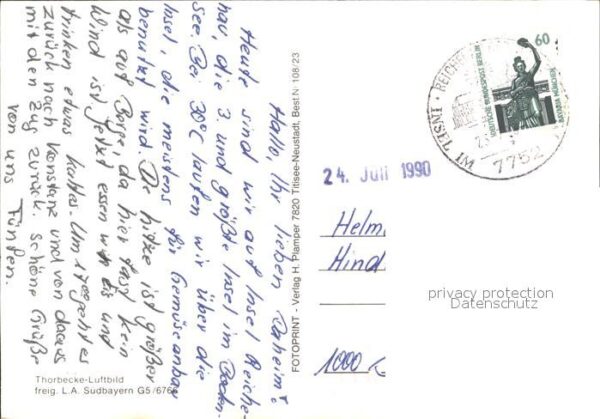 Hallo, Ihr lieben Daheim!
Heute sind wir auf Insel Reiche-
nau, die 3. und größte Insel im Boden-
see. Bei 30°C laufen wir über die
Insel, die meistens für Gemüseanbau
benutzt wird. Die hitze ist größer
als auf Bosse, da hier fast kein
Wind ist. Jetzt essen wir Eis und
trinken etwas kaltes. Um 17°° geht es
zurück nach Konstanz und von da aus
mit den Zug zurück. Schöne Grüße
von uns Fünfen.
Thorbecke-Luftbild
freig. L.A. Südbayern G5/6766
FOTOPRINT - Verlag H. Plamper 7820 Titisee-Neustadt, Best.Nr. 108/23
60
DEUTSCHE BUNDESPOST BERLIN
BAVARIA MÜNCHEN
INSEL IM
7752
24. Juli 1990
Helm
Hind
1000
privacy protection
Datenschutz